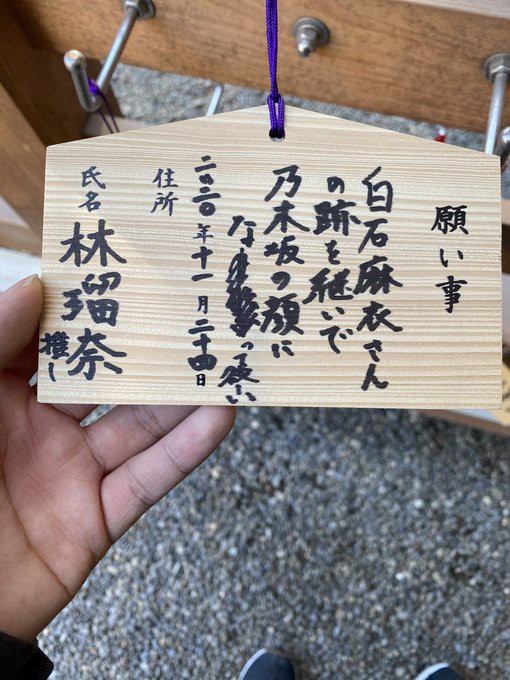 願い事
白石麻衣さん
の跡を継いで
乃木坂の顔に
なって欲しい
二〇二〇年十一月二十四日
住所
氏名 林瑠奈推し